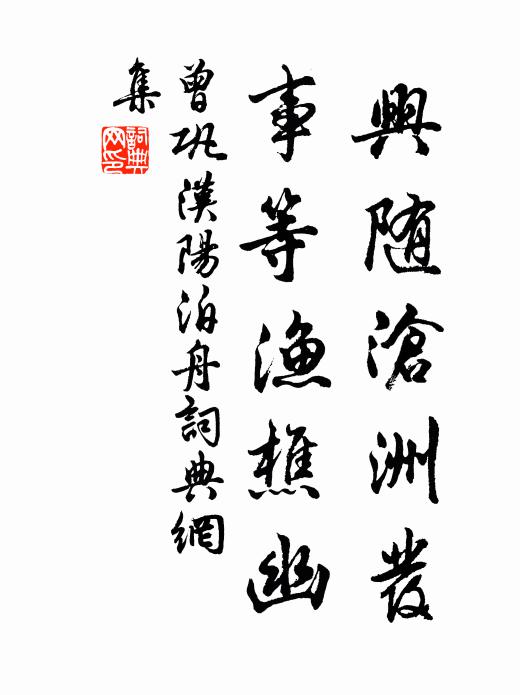 興随滄洲發
事等漁樵幽
曾巩漢陽泊舟詞典網
集
詞典网印